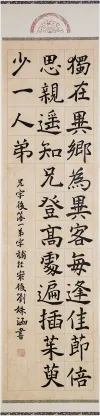 獨在異鄉為異客每逢佳節倍
思親遙知兄登高處遍插茱萸
少一人弟
兄字後落一弟字補於後劉書